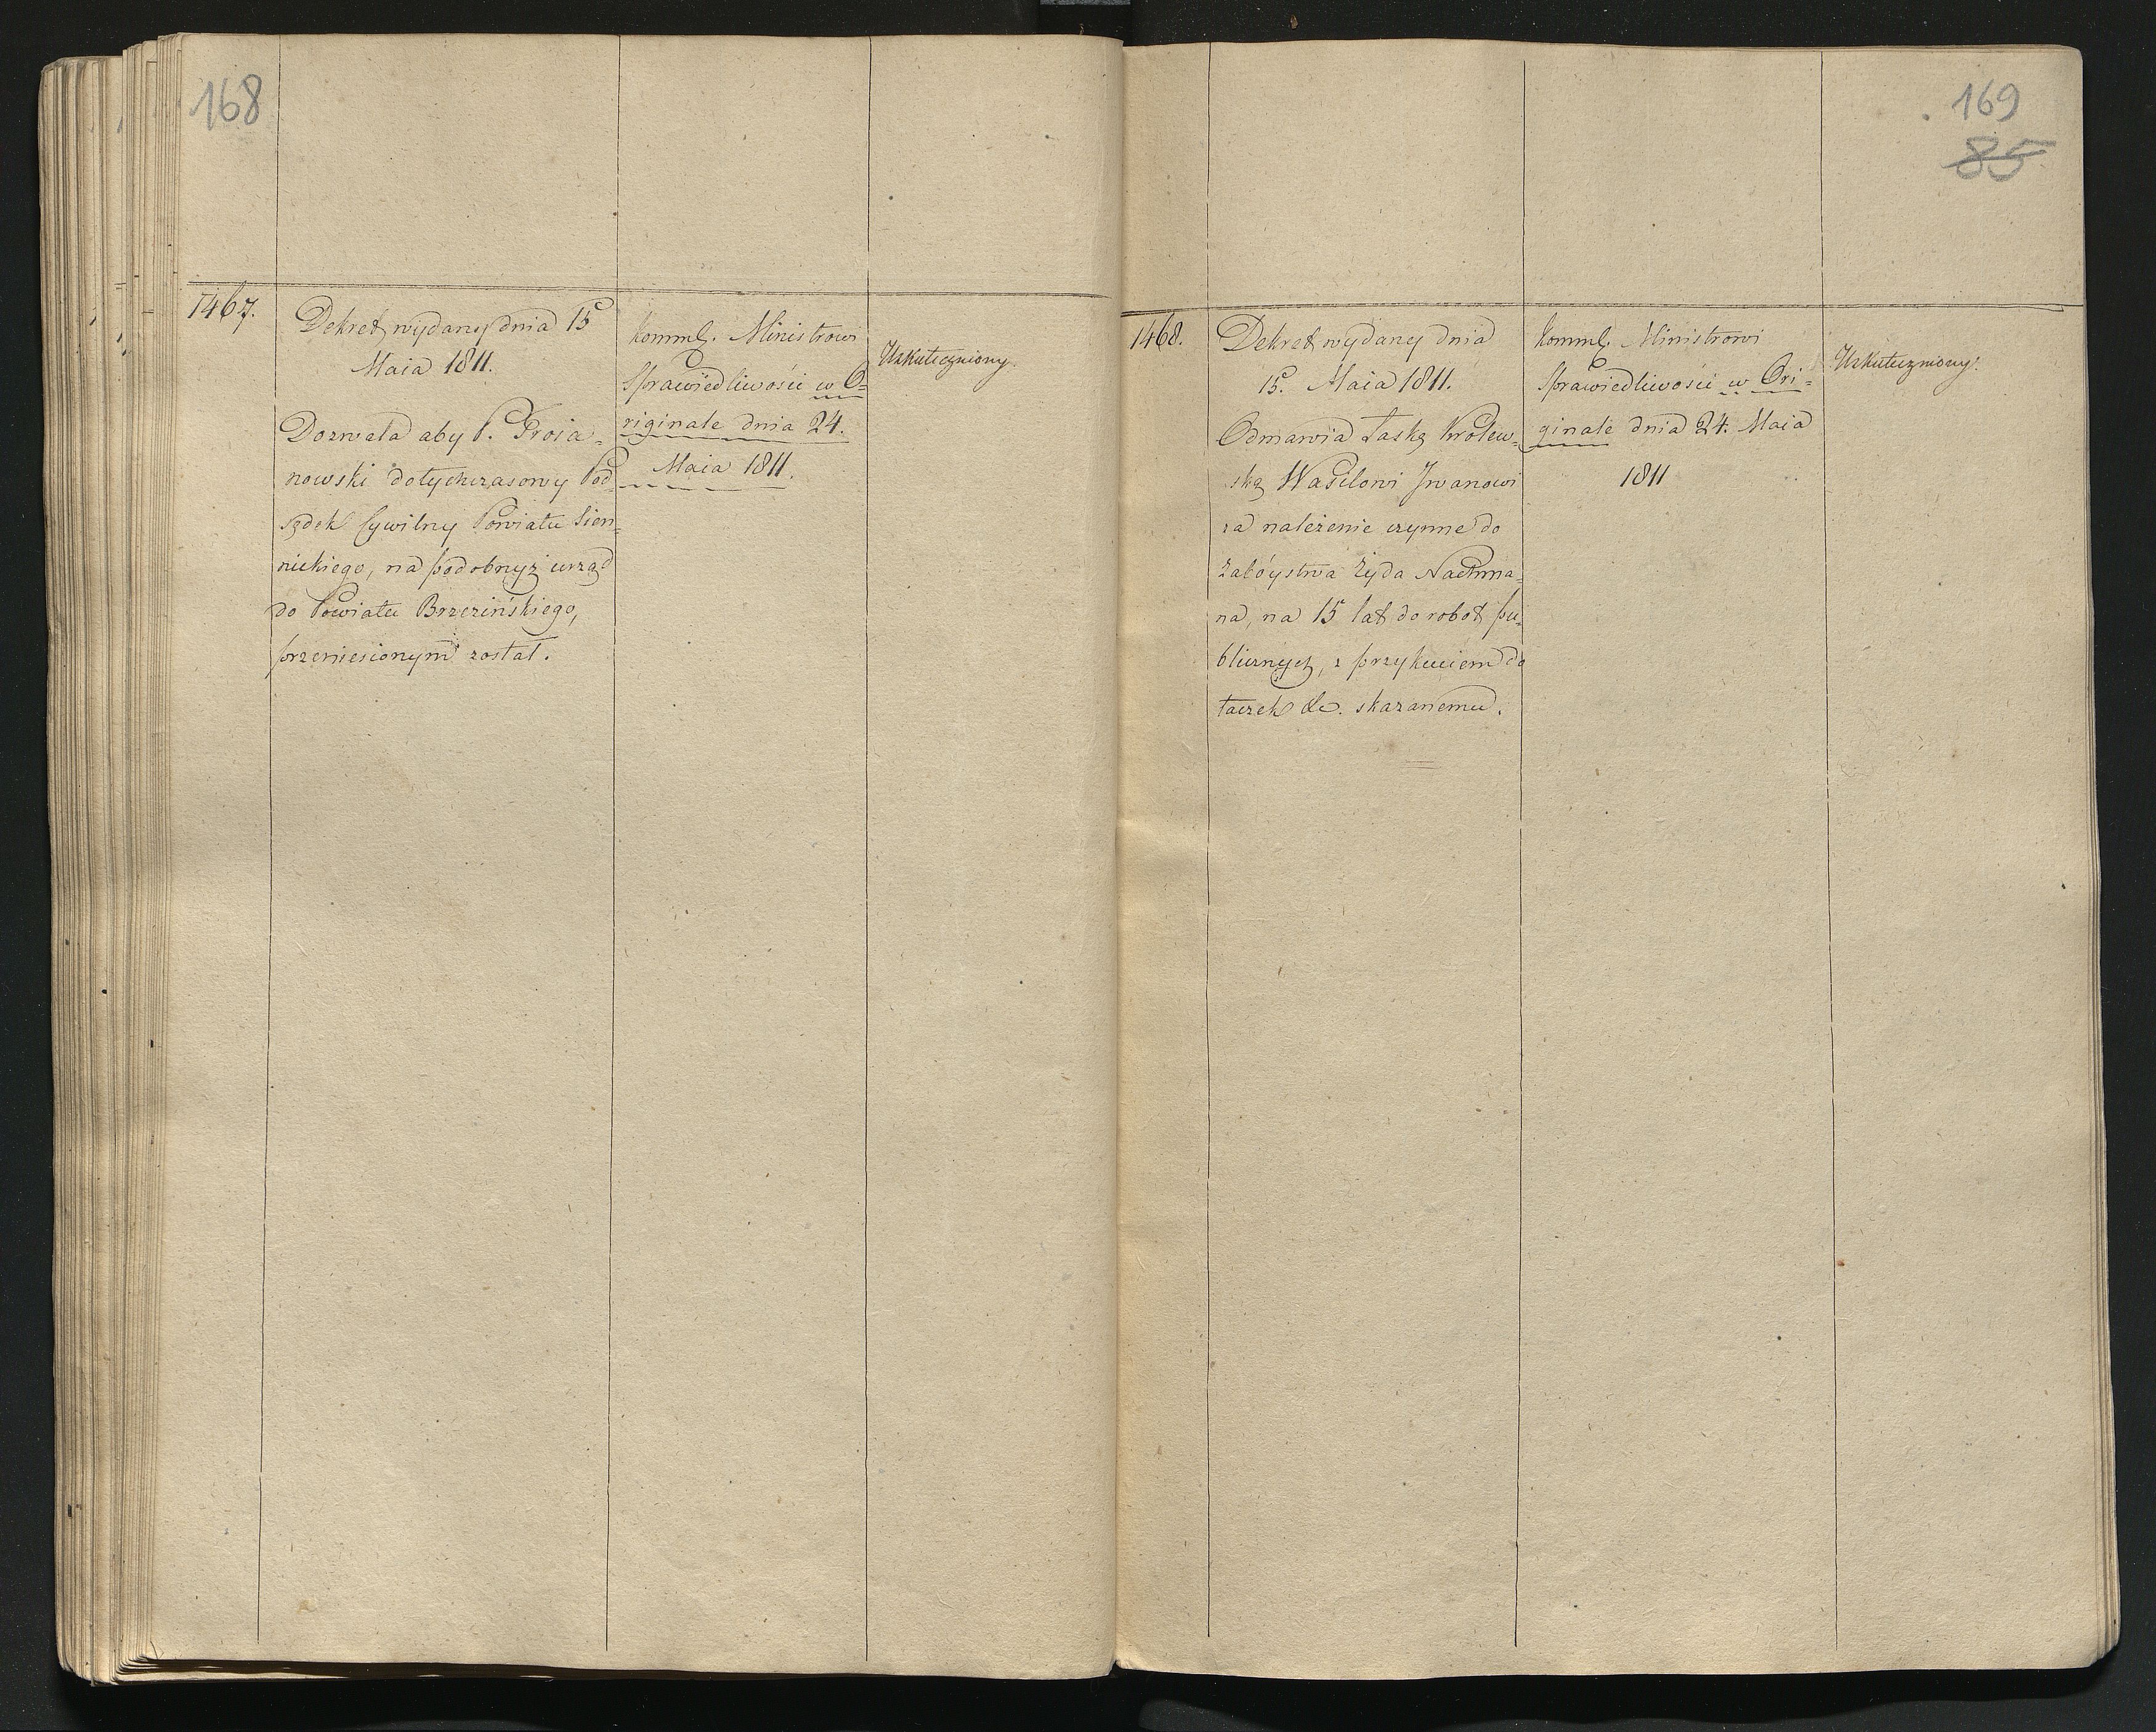 168
1467.
Dekret wydany dnia 15
Maia 1811.
Dozwala aby P. Troia-
nowski dotychczasowy Pod-
sędek Cywilny Powiatu Sien-
nickiego, na podobnyż urząd
do Powiatu Brzezińskiego,
przeniesionym został.
Komml. Ministrowi
Sprawiedliwości w O=
riginale dnia 24.
Maia 1811.
Uskuteczniony.
169
85
1468.
Dekret wydany dnia
15. Maia 1811.
Odmawia Łaskę Królew-
ską Wasilowi Jwanowi
za należenie czynne do
Zabóystwa Żyda Nachma-
na, na 15 lat do robot pu-
blicznych, z przykuciem do
taczek &c. skazanemu.
Komml. Ministrowi
Sprawiedliwości w Ori=
ginale dnia 24. Maia
1811
Uskuteczniony.